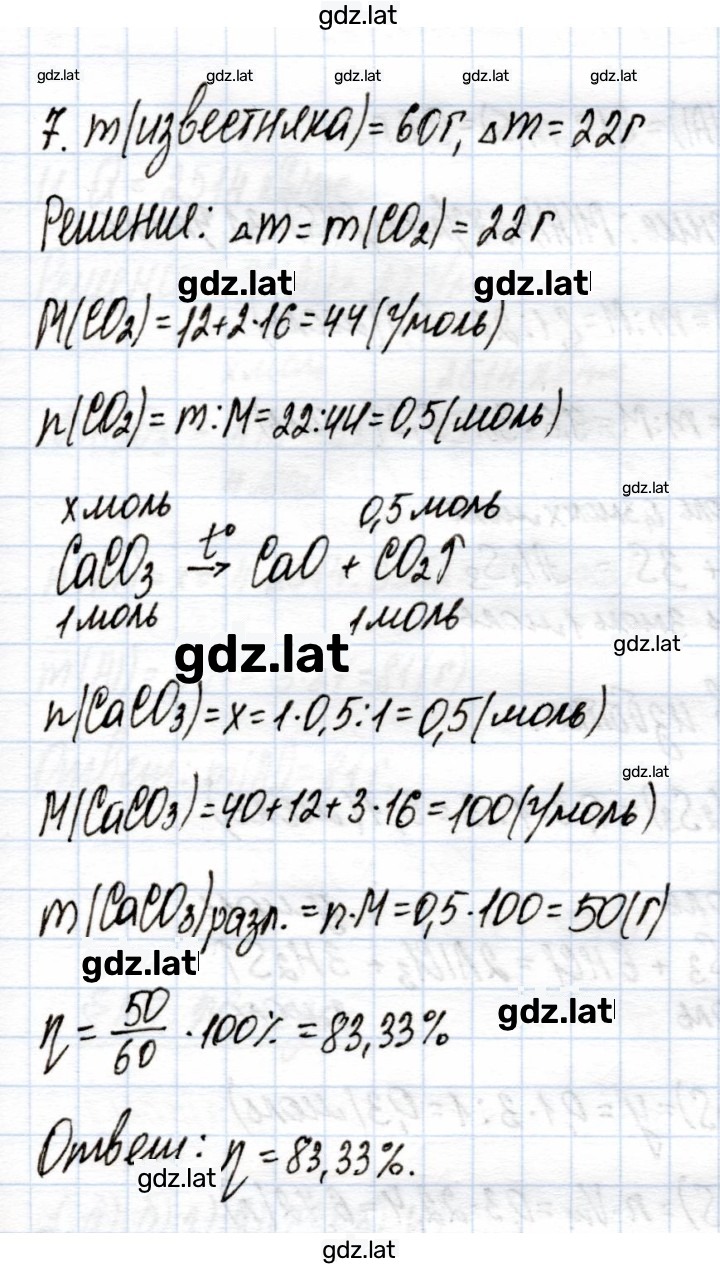 gdz.lat
gdz.lat gdz.lat gdz.lat gdz.lat gdz.lat
7. m(известняка)=60г, Δm=22г
Решение: Δm=m(CO₂)=22г
gdz.lat gdz.lat
M(CO₂)=12+2·16=44(г/моль)
n(CO₂)=m:M=22:44=0,5(моль)
gdz.lat
x моль 0,5 моль
CaCO₃ t°→ CaO + CO₂↑
1 моль 1 моль
gdz.lat gdz.lat
n(CaCO₃)=x=1·0,5:1=0,5(моль)
gdz.lat
M(CaCO₃)=40+12+3·16=100(г/моль)
m(CaCO₃)разл.=n·M=0,5·100=50(г)
gdz.lat
η = 50/60 · 100% = 83,33%
gdz.lat
Ответ: η = 83,33%.
gdz.lat
gdz.lat